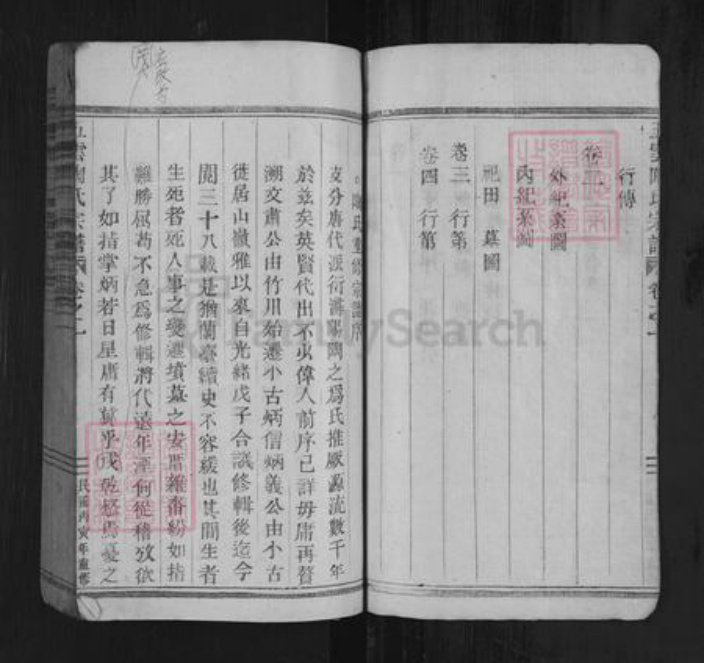 行傳
卷二
外紀系圖
內紀系圖
祀田 墓圖
卷三 行第
卷四 行第
陶氏重修宗譜序
支分唐代派衍潯陽陶之爲氏推厥源流數千年
於茲矣英賢代出不少偉人前序已詳毋庸再贅
溯文肅公由竹川始遷小古炳信炳義公由小古
徙居山嶺雅以來自光緒戊子合議修輯後迄今
閱三十八載是猶蘭臺續史不容緩也其間生者
生死者死人事之變遷墳墓之安厝雜沓紛如指
難勝屈苟不急爲修輯將代遠年湮何從稽攷欲
其了如指掌炳若日星庸有冀乎戊乾惄焉憂之
雲陶氏宗譜 卷之一
民國丙寅年重修
FamilySearch